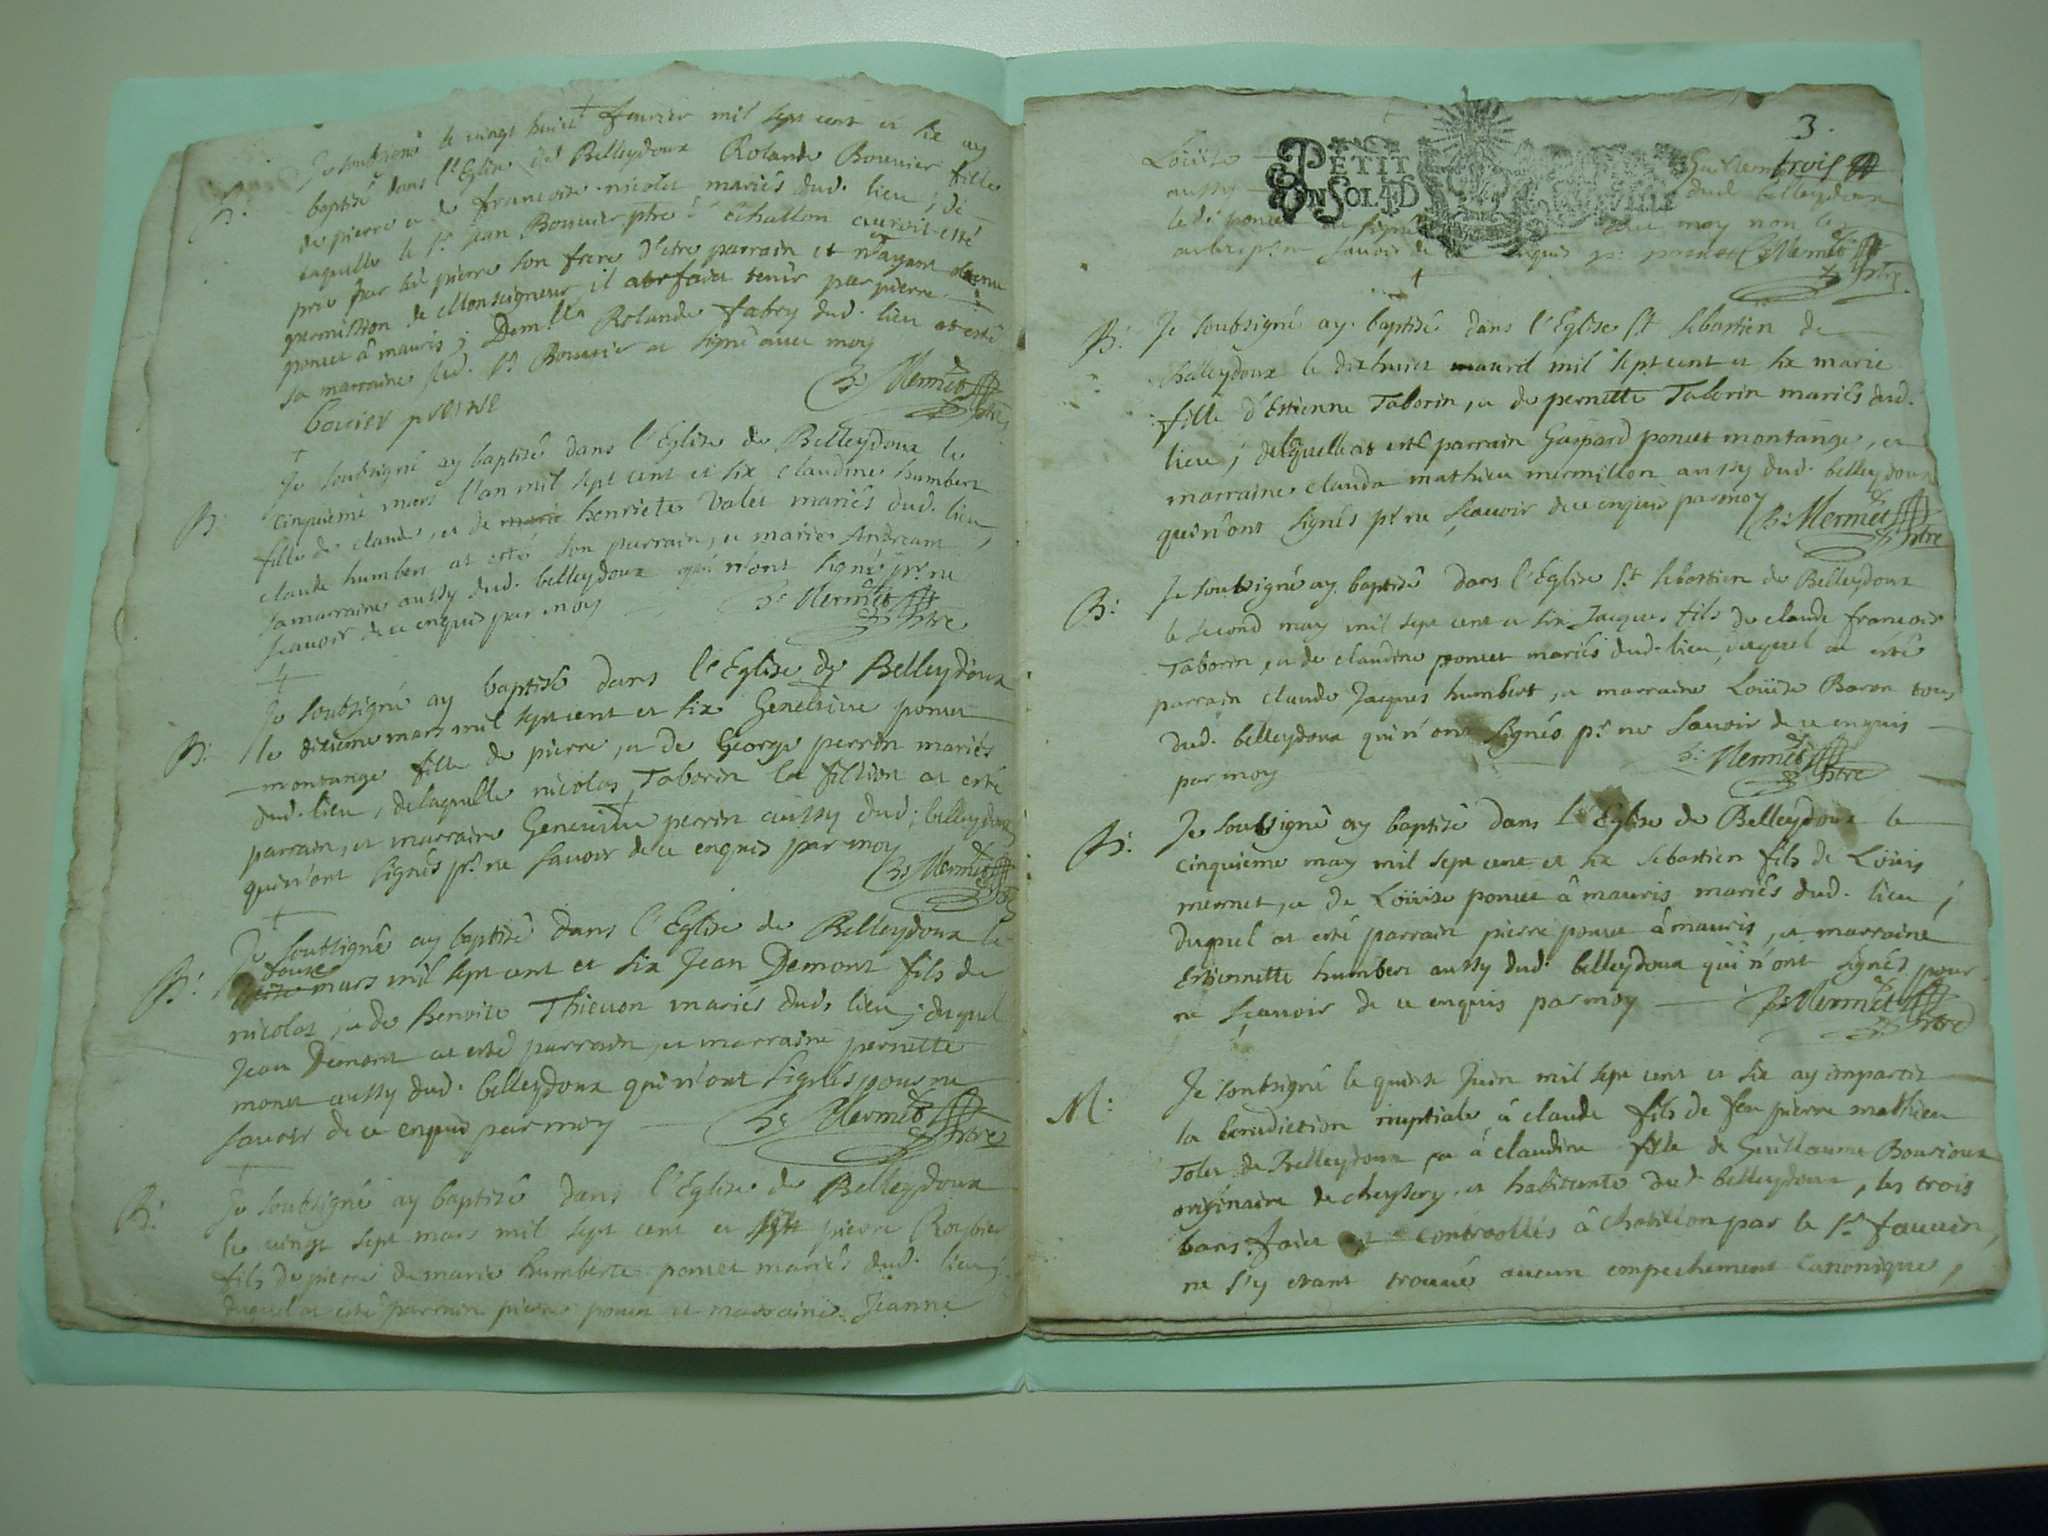 B: Je soubsigné le vingt huict feuvrier mil sept cent et six ay
baptisé dans l'Eglise de Belleydoux Rolande Bouvier fille
de pierre et de francoise nicolet mariés dud. lieu, de
laquelle le Sr Jean Bouvier ptre d'Echallon auroit esté
prié par led pierre son frere d'etre parrain et n'ayant obtenu
permission de Monseigneur il at fait tenir par pierre
poncet â mauris; Rolande fabry dud. lieu at esté
sa marraine led. Sr Bouvier at signé avec moy
Bouvier pretre Mermet ptre
B: Je soubsigné ay baptisé dans l'Eglise de Belleydoux le
cinquieme mars l'an mil sept cent et six claudine humbert
fille de claude, et de marie henriete Valet mariés dud. lieu,
claude humbert at esté son parrain, et marie Andreane
sa marraine aussy dud. belleydoux qui n'ont signé pr. ne
scavoir de ce enquis par moy Mermet ptre
B: Je soubsigné ay baptisé dans l'Eglise de Belleydoux
le dixieme mars mil sept cent et six Geneuiue poncet
montange fille de pierre, et de George perrin mariés
dud. lieu, de laquelle nicolas Taborin la fillion at esté
parrain, et marraine Geneuiue perrin aussy dud. belleydoux
qui n'ont signés pr. ne savoir de ce enquis par moy
Mermet ptre
B: Je soubsigné ay baptisé dans l'Eglise de Belleydoux le
douze mars mil sept cent et six Jean Demont fils de
nicolas, et de benoite Thieuon mariés dud. lieu; duquel
Jean Demont at esté parrain, et marraine pernette
monet aussy dud. belleydoux qui n'ont signés pour ne
savoir de ce enquis par moy Mermet ptre
B: Je soubsigné ay baptisé dans l'Eglise de Belleydoux
le vingt sept mars mil sept cent et six pierre
fils de pierre de marie humberte poncet mariés dud. lieu;
duquel at esté parrain pierre poncet et marraine Jeanne
3.
Louise PETIT trois
aussy ON SOL 4 D dud belleydoux
moy non les
autre pr. ne scavoir de ce enquis Mermet
ptre
B: Je soubsigné ay baptisé dans l'Eglise St Sebastien de
Belleydoux le dixhuict auril mil sept cent et six marie
fille d'Estienne Taborin, et de pernette Taborin mariés dud.
lieu; de laquelle at esté parrain Gaspard poncet montange, et
marraine clauda mathieu mermillon aussy dud. belleydoux
qui n'ont signés pr. ne scavoir de ce enquis par moy Mermet
ptre
B: Je soubsigné ay baptisé dans l'Eglise St Sebastien de Belleydoux
le second may mil sept cent et six Jacques fils de claude francois
Taborin, et de claudine poncet mariés dud. lieu, duquel at esté
parrain claude Jacques humbert, et marraine Louise Baron tous
dud. belleydoux qui n'ont signés pr. ne savoir de ce enquis
par moy Mermet ptre
B: Je soubsigné ay baptisé dans l'Eglise de Belleydoux le
cinquieme may mil sept cent et six Sebastien fils de Loüis
mermet, et de Loüise poncet â mauris mariés dud. lieu;
duquel at esté parrain pierre poncet â mauris, et marraine
Estiennette humbert aussy dud. belleydoux qui n'ont signés pour
ne sçavoir de ce enquis par moy Mermet
ptre
M: Je soubsigné le quinze Juin mil sept cent et six ay imparti
la benediction nuptiale, à claude fils de feu pierre mathieu
Tolet de Belleydoux, et à claudine fille de Guillaume Bourioux
originaire de cheysery et habitante dud. belleydoux, les trois
bans faict et controollés â Chatillon par le Sr fauuin,
ne s'y etant trouué aucun empechement canonique,